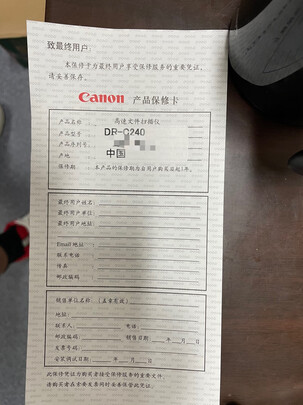 致最终用户:
本保修卡为最终用户享受保修服务的重要凭证,
请妥善保存。
Canon 产品保修卡
产品名称 高速文件扫描仪
产品型号: DR-C240
产品序列号:
产地: 中国
保修期: 本产品的保修期为自用户购买日起1年。
最终用户姓名:
最终用户单位:
最终用户地址:
Email 地址:
联系电话:
传真:
邮政编码:
销售单位名称 (盖章有效)
地址:
联系人: 电话:
邮政编码: 销售日期: 年 月 日
发票号码:
安装调试日期: 年 月 日
此保修凭证为购买者接受保修服务的重要文件,
请购买者在索要发票同时务要保管此凭证。